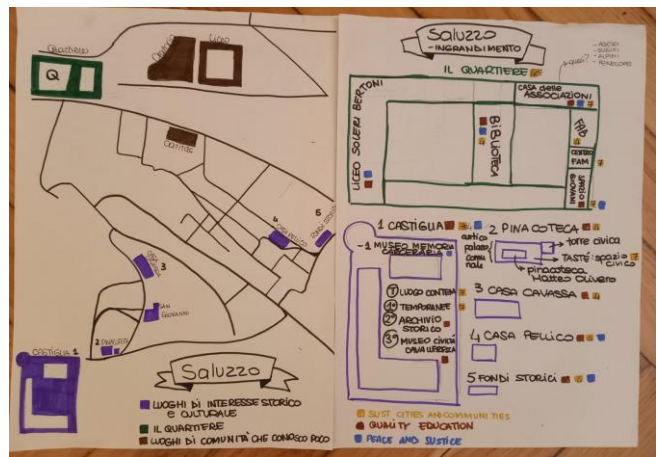 ORATORIO
LICEO
Q
CARITAS
4
CASA PELLICO
5
FONDI STORICI
CASA CAVASSA
3
SAN GIOVANNI
2 PINACOTECA
CASTIGLIA 1
Saluzzo
LUOGHI DI INTERESSE STORICO
E CULTURALE
IL QUARTIERE
LUOGHI DI COMUNITÀ CHE CONOSCO POCO
Saluzzo
-INGRANDIMENTO
IL QUARTIERE
LICEO SOLERI BERTONI
BIBLIOTECA
CASA delle
ASSOCIAZIONI
FAB
CENTRO
FAM
SPAZIO
GIOVANI
1 CASTIGLIA
-1 MUSEO MEMORIA
CARCERARIA
T LUOGO CONTEM
1° TEMPORANEE
2° ARCHIVIO
STORICO
3° MUSEO CIVILTÀ
CAVALLERESCA
2 PINACOTECA
antico
palazzo
comunale
torre civica
TASTE: spazio
civico
pinacoteca
Matteo Olivero
3 CASA CAVASSA
4 CASA PELLICO
5 FONDI STORICI
SUST CITIES AND COMMUNITIES
QUALITY EDUCATION
PEACE AND JUSTICE